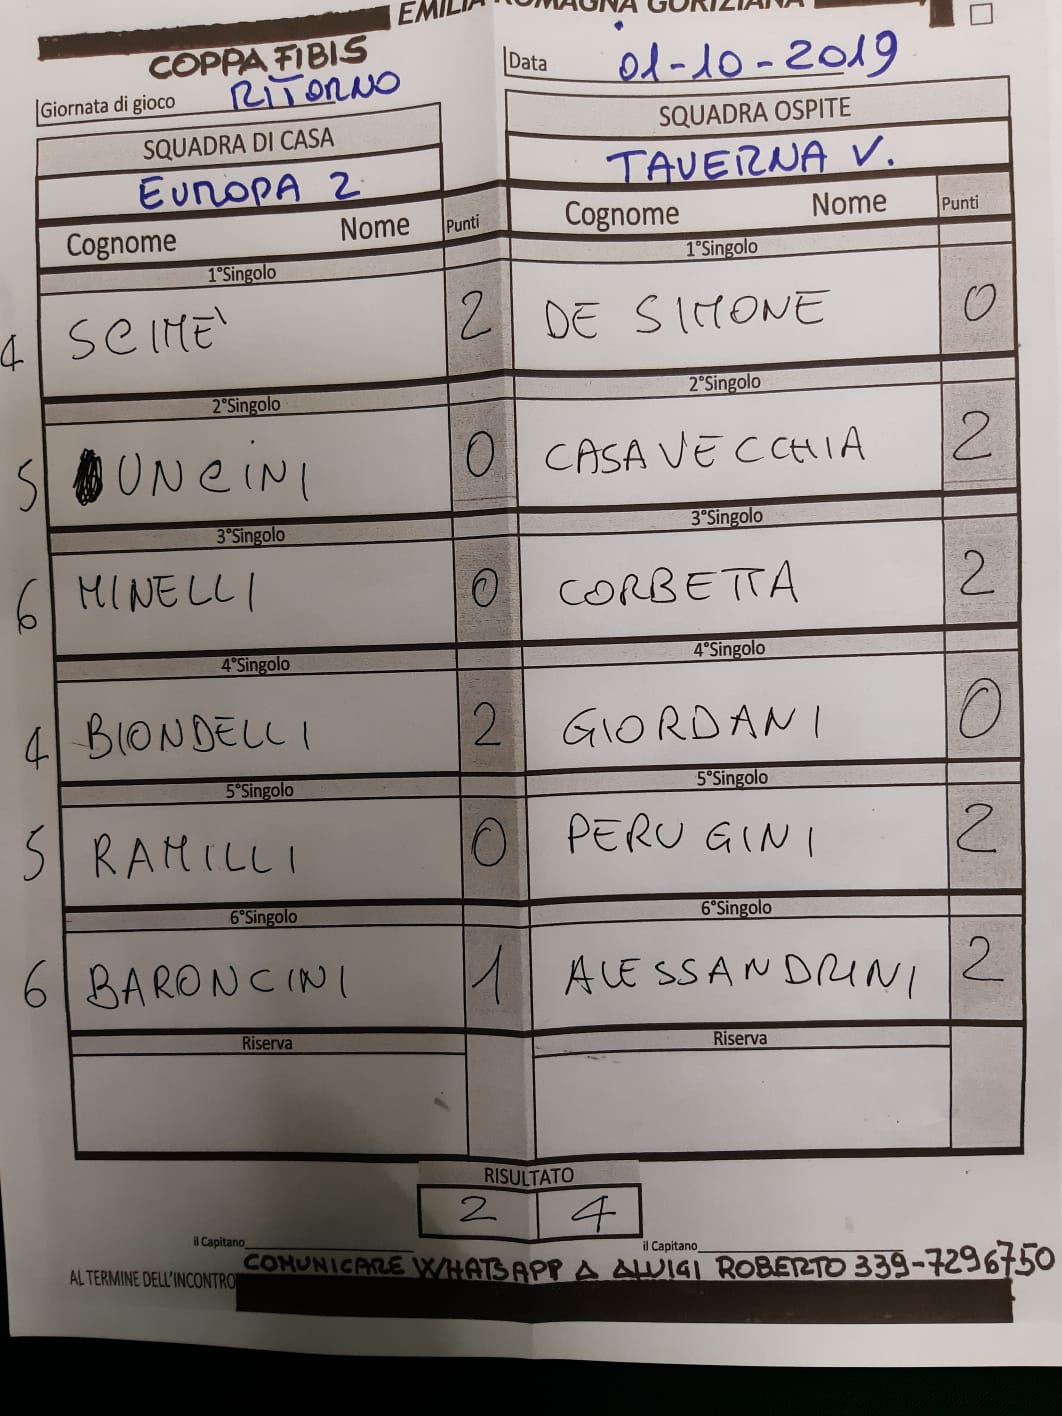 EMILIA ROMAGNA GORIZIANA
COPPA FIBIS
Giornata di gioco RITORNO
Data 01-10-2019
SQUADRA DI CASA
SQUADRA OSPITE
EUROPA 2
TAVERNA V.
Cognome Nome Punti
Cognome Nome Punti
1°Singolo
1°Singolo
4 SCIME' 2
DE SIMONE 0
2°Singolo
2°Singolo
5 UNCINI 0
CASAVECCHIA 2
3°Singolo
3°Singolo
6 MINELLI 0
CORBETTA 2
4°Singolo
4°Singolo
4 BIONDELLI 2
GIORDANI 0
5°Singolo
5°Singolo
5 RAMILLI 0
PERUGINI 2
6°Singolo
6°Singolo
6 BARONCINI 1
ALESSANDRINI 2
Riserva
Riserva
RISULTATO
2 4
il Capitano
il Capitano
AL TERMINE DELL'INCONTRO COMUNICARE WHATSAPP A ALUIGI ROBERTO 339-7296750